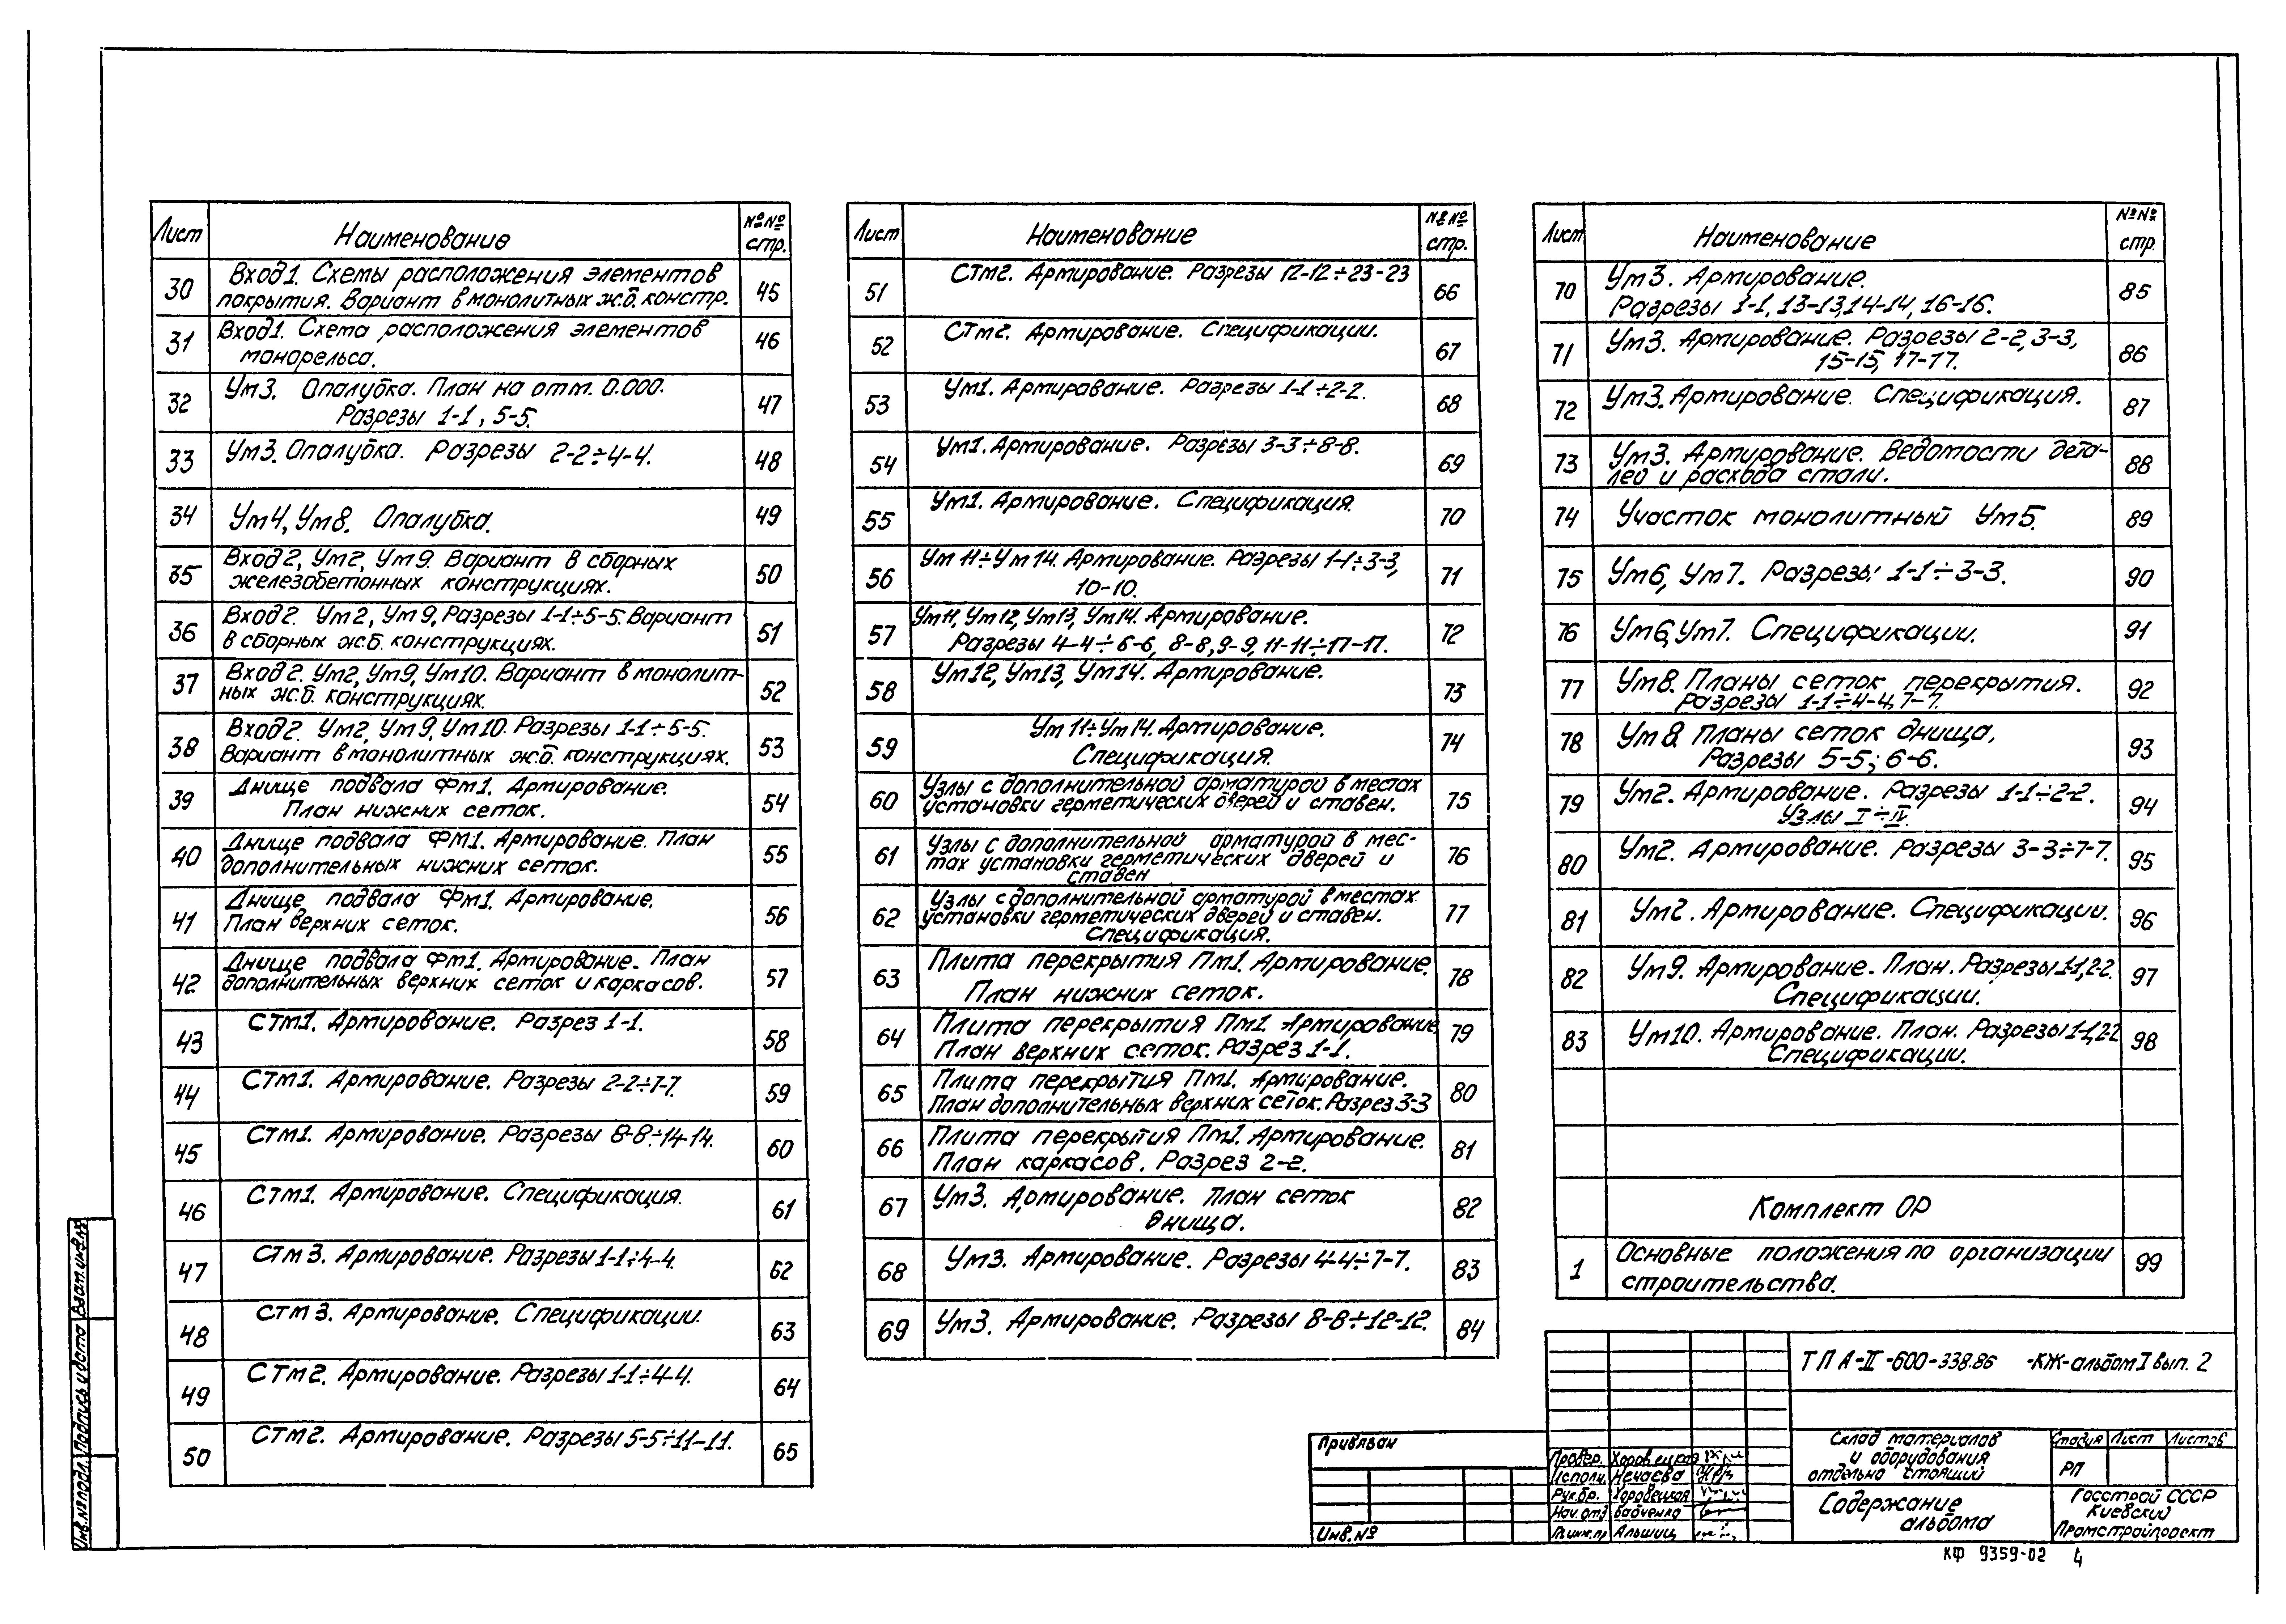 Лист Наименование №№ стр.
30 Вход1. Схемы расположения элементов покрытия. Вариант в монолитных ж.б. констр. 45
31 Вход1. Схема расположения элементов монорельса. 46
32 Ум3. Опалубка. План на отм. 0.000. Разрезы 1-1, 5-5. 47
33 Ум3. Опалубка. Разрезы 2-2÷4-4. 48
34 Ум4, Ум8. Опалубка. 49
35 Вход2, Ум2, Ум9. Вариант в сборных железобетонных конструкциях. 50
36 Вход2. Ум2, Ум9, Разрезы 1-1÷5-5. Вариант в сборных ж.б. конструкциях. 51
37 Вход2. Ум2, Ум9, Ум10. Вариант в монолитных ж.б. конструкциях. 52
38 Вход2. Ум2, Ум9, Ум10. Разрезы 1-1÷5-5. Вариант в монолитных ж.б. конструкциях. 53
39 Днище подвала Фм1. Армирование. План нижних сеток. 54
40 Днище подвала Фм1. Армирование. План дополнительных нижних сеток. 55
41 Днище подвала Фм1. Армирование. План верхних сеток. 56
42 Днище подвала Фм1. Армирование. План дополнительных верхних сеток и каркасов. 57
43 Стм1. Армирование. Разрез 1-1. 58
44 Стм1. Армирование. Разрезы 2-2÷7-7. 59
45 Стм1. Армирование. Разрезы 8-8÷14-14. 60
46 Стм1. Армирование. Спецификация. 61
47 Стм3. Армирование. Разрезы 1-1÷4-4. 62
48 Стм3. Армирование. Спецификации. 63
49 Стм2. Армирование. Разрезы 1-1÷4-4. 64
50 Стм2. Армирование. Разрезы 5-5÷11-11. 65
Лист Наименование №№ стр.
51 Стм2. Армирование. Разрезы 12-12÷23-23 66
52 Стм2. Армирование. Спецификации. 67
53 Ум1. Армиравание. Разрезы 1-1÷2-2. 68
54 Ум1. Армирование. Разрезы 3-3÷8-8. 69
55 Ум1. Армирование. Спецификация. 70
56 Ум11÷Ум14. Армирование. Разрезы 1-1÷3-3, 10-10. 71
57 Ум11, Ум12, Ум13, Ум14. Армирование. Разрезы 4-4÷6-6, 8-8, 9-9, 11-11÷17-17. 72
58 Ум12, Ум13, Ум14. Армирование. 73
59 Ум11÷Ум14. Армирование. Спецификация. 74
60 Узлы с дополнительной арматурой в местах установки герметических дверей и ставен. 75
61 Узлы с дополнительной арматурой в местах установки герметических дверей и ставен 76
62 Узлы с дополнительной арматурой в местах установки герметических дверей и ставен. Спецификация. 77
63 Плита перекрытия Пм1. Армирование. План нижних сеток. 78
64 Плита перекрытия Пм1. Армирование. План верхних сеток. Разрез 1-1. 79
65 Плита перекрытия Пм1. Армирование. План дополнительных верхних сеток. Разрез 3-3 80
66 Плита перекрытия Пм1. Армирование. План каркасов. Разрез 2-2. 81
67 Ум3. Армирование. План сеток днища. 82
68 Ум3. Армирование. Разрезы 4-4÷7-7. 83
69 Ум3. Армирование. Разрезы 8-8÷12-12. 84
Лист Наименование №№ стр.
70 Ум3. Армирование. Разрезы 1-1, 13-13, 14-14, 16-16. 85
71 Ум3. Армирование. Разрезы 2-2, 3-3, 15-15, 17-17. 86
72 Ум3. Армирование. Спецификация. 87
73 Ум3. Армирование. Ведомости деталей и расхода стали. 88
74 Участок монолитный Ум5. 89
75 Ум6, Ум7. Разрезы 1-1÷3-3. 90
76 Ум6, Ум7. Спецификации. 91
77 Ум8. Планы сеток перекрытия. Разрезы 1-1÷4-4, 7-7. 92
78 Ум8. Планы сеток днища, Разрезы 5-5; 6-6. 93
79 Ум2. Армирование. Разрезы 1-1÷2-2. Узлы I÷IV. 94
80 Ум2. Армирование. Разрезы 3-3÷7-7. 95
81 Ум2. Армирование. Спецификации. 96
82 Ум9. Армирование. План. Разрезы 1-1, 2-2. Спецификации. 97
83 Ум10. Армирование. План. Разрезы 1-1, 2-2 Спецификации. 98
Комплект ОР
1 Основные положения по организации строительства. 99
ТП А-II-600-338.86 -КЖ-альбом I вып. 2
Склад материалов и оборудования отдельно стоящий
Стадия Лист Листов
РП
Содержание альбома
Госстрой СССР Киевский Промстройпроект
Провер. Хоровецкая
Исполн. Нечаева
Рук.бр. Хоровецкая
Нач.отд. Бабченко
Гл.инж.пр Альшиц
Привязан
Инв.№
Инв.№подл. Подпись и дата Взам.инв.№
КФ 9359-02 4